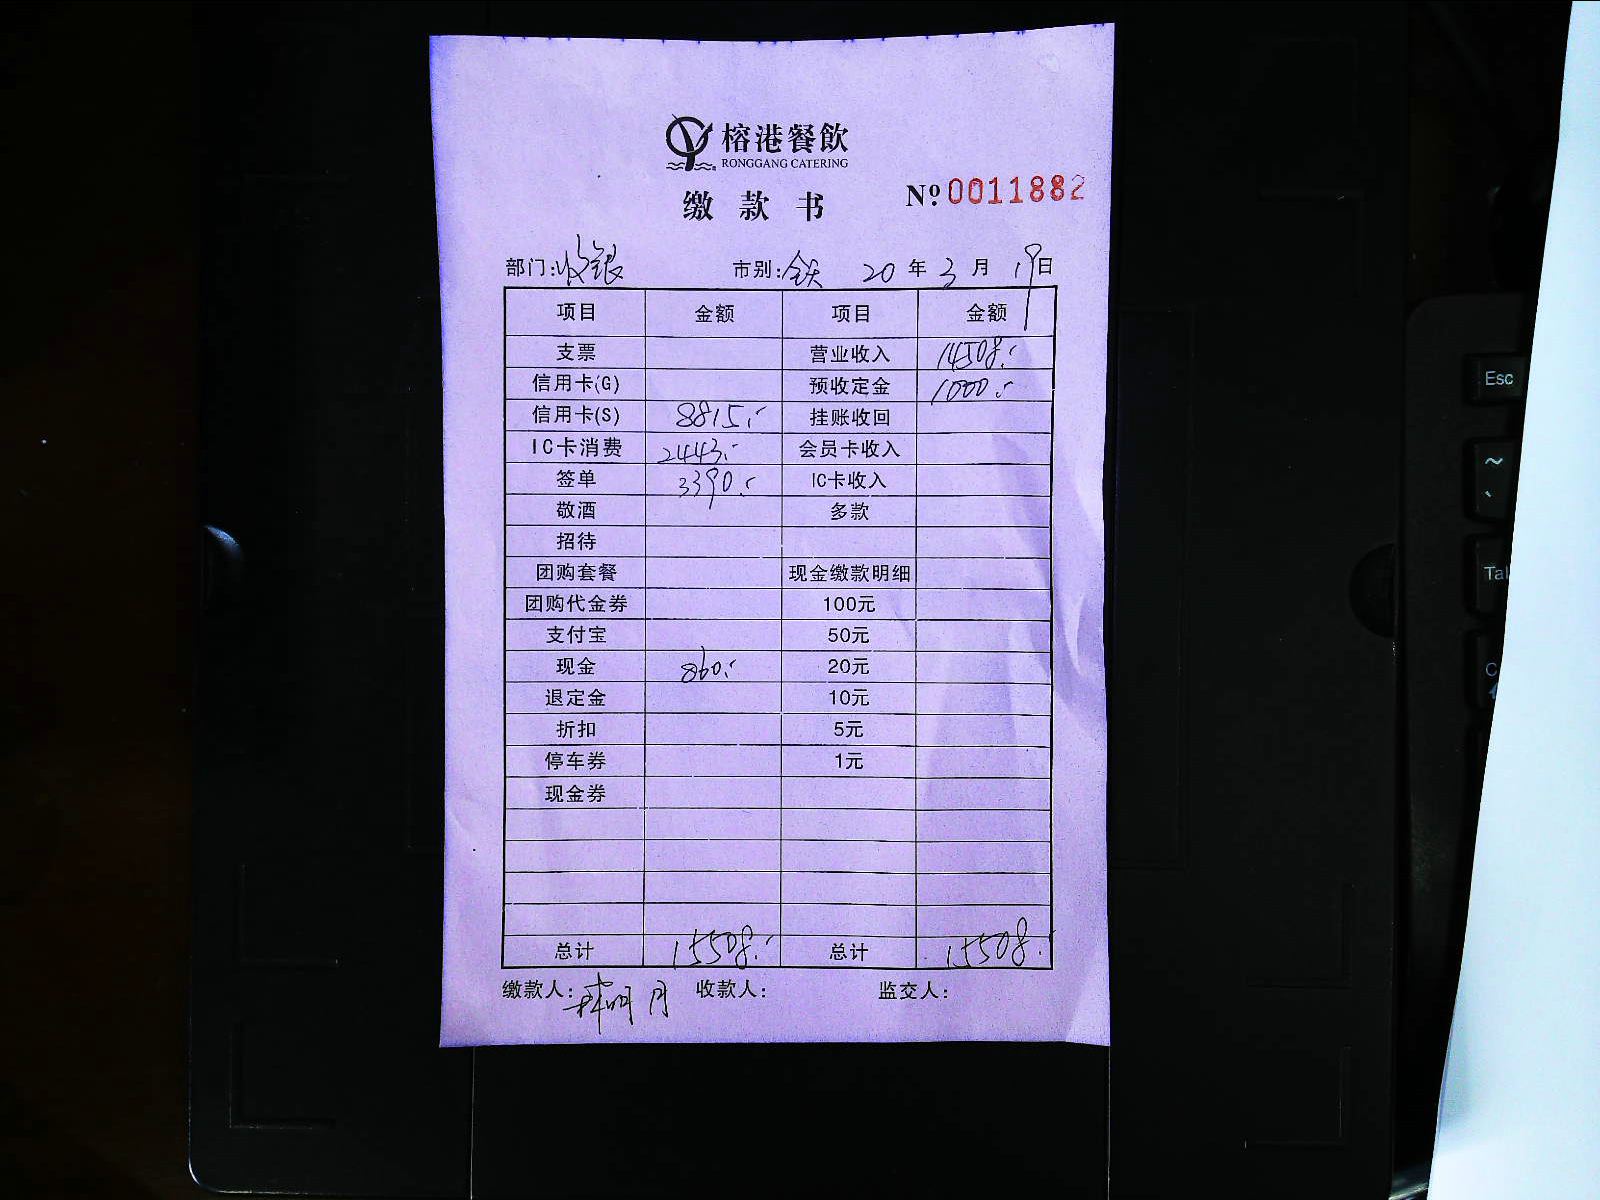 榕港餐飲
RONGGANG CATERING
缴款书
Nº 0011882
部门:收银 市别:全天 20年3月19日
项目 金额 项目 金额
支票 营业收入 14508.-
信用卡(G) 预收定金 1000.-
信用卡(S) 8815.- 挂账收回
IC卡消费 2443.- 会员卡收入
签单 3390.- IC卡收入
敬酒 多款
招待
团购套餐 现金缴款明细
团购代金券 100元
支付宝 50元
现金 860.- 20元
退定金 10元
折扣 5元
停车券 1元
现金券
总计 15508.- 总计 15508.-
缴款人: 明月 收款人: 监交人:
Esc
~
、
Ta
C